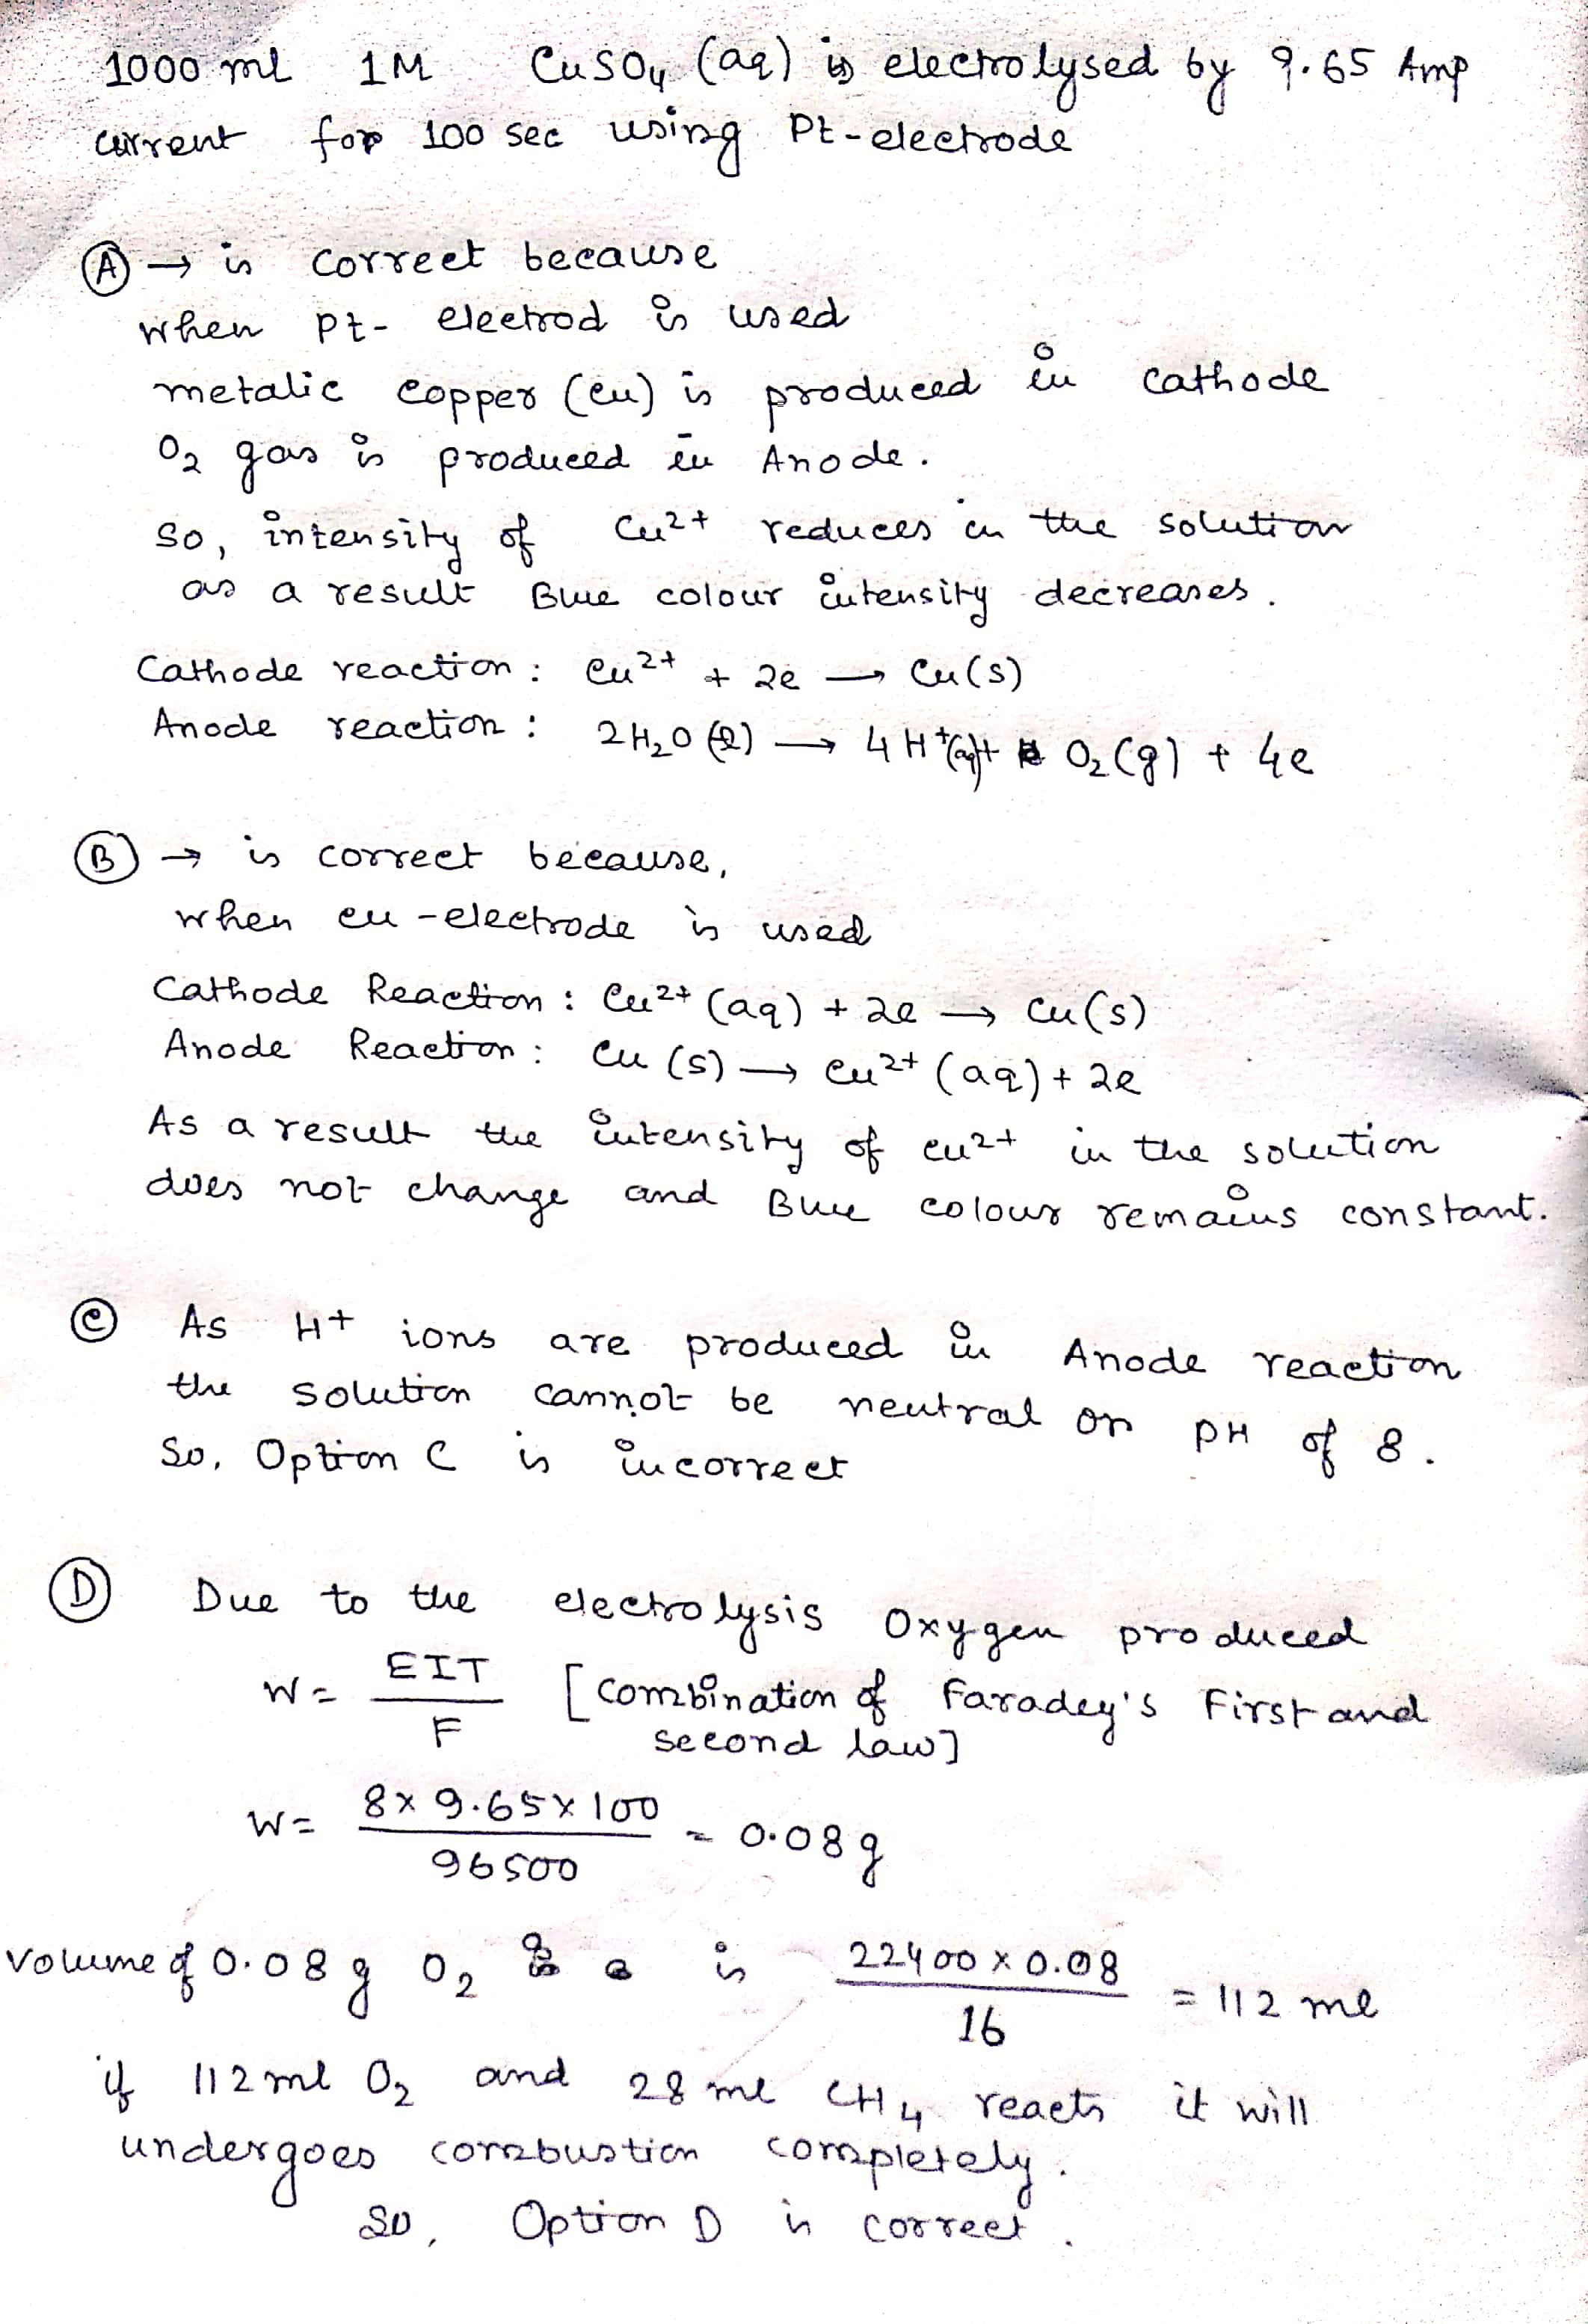 1000 ml 1M CuSO4 (aq) is electrolysed by 9.65 Amp
current for 100 sec using Pt-electrode
(A) → is correct because
when pt- electrod is used
metalic copper (cu) is produced in cathode
O2 gas is produced in Anode.
So, intensity of Cu²⁺ reduces in the solution
as a result Blue colour intensity decreases.
Cathode reaction : Cu²⁺ + 2e → Cu(s)
Anode reaction : 2H2O (l) → 4H⁺(aq)+ O2(g) + 4e
(B) → is correct because,
when cu-electrode is used
Cathode Reaction : Cu²⁺ (aq) + 2e → Cu(s)
Anode Reaction : Cu (s) → Cu²⁺ (aq) + 2e
As a result the intensity of cu²⁺ in the solution
does not change and Blue colour remains constant.
(C) As H⁺ ions are produced in Anode reaction
the solution cannot be neutral or pH of 8.
So, Option C is incorrect
(D) Due to the electrolysis Oxygen produced
W = EIT/F [Combination of Faradey's First and
second law]
W = 8 x 9.65 x 100/96500 = 0.08 g
volume of 0.08 g O2 is 22400 x 0.08/16 = 112 ml
if 112 ml O2 and 28 ml CH4 reacts it will
undergoes combustion completely.
So, Option D is correct.